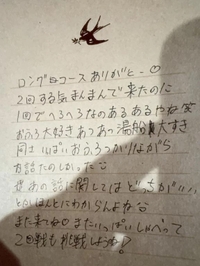 ロングコースありがとー♡
2回する気まんまんで来たのに
1回でへろへろなのあるあるやね笑
おふろ大好きあつあつ湯船大すき
肩まで
おふろつかりながら
お話たのしかった
の話に関してはどっちがいい
とかほんとにわからんよな
また来てね♡またいっぱいしゃべって
2回戦も挑戦しような!